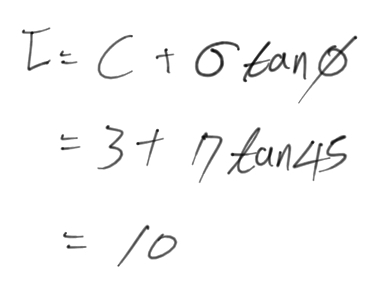 τ = C + σ tan ϕ
= 3 + 7 tan 45
= 10